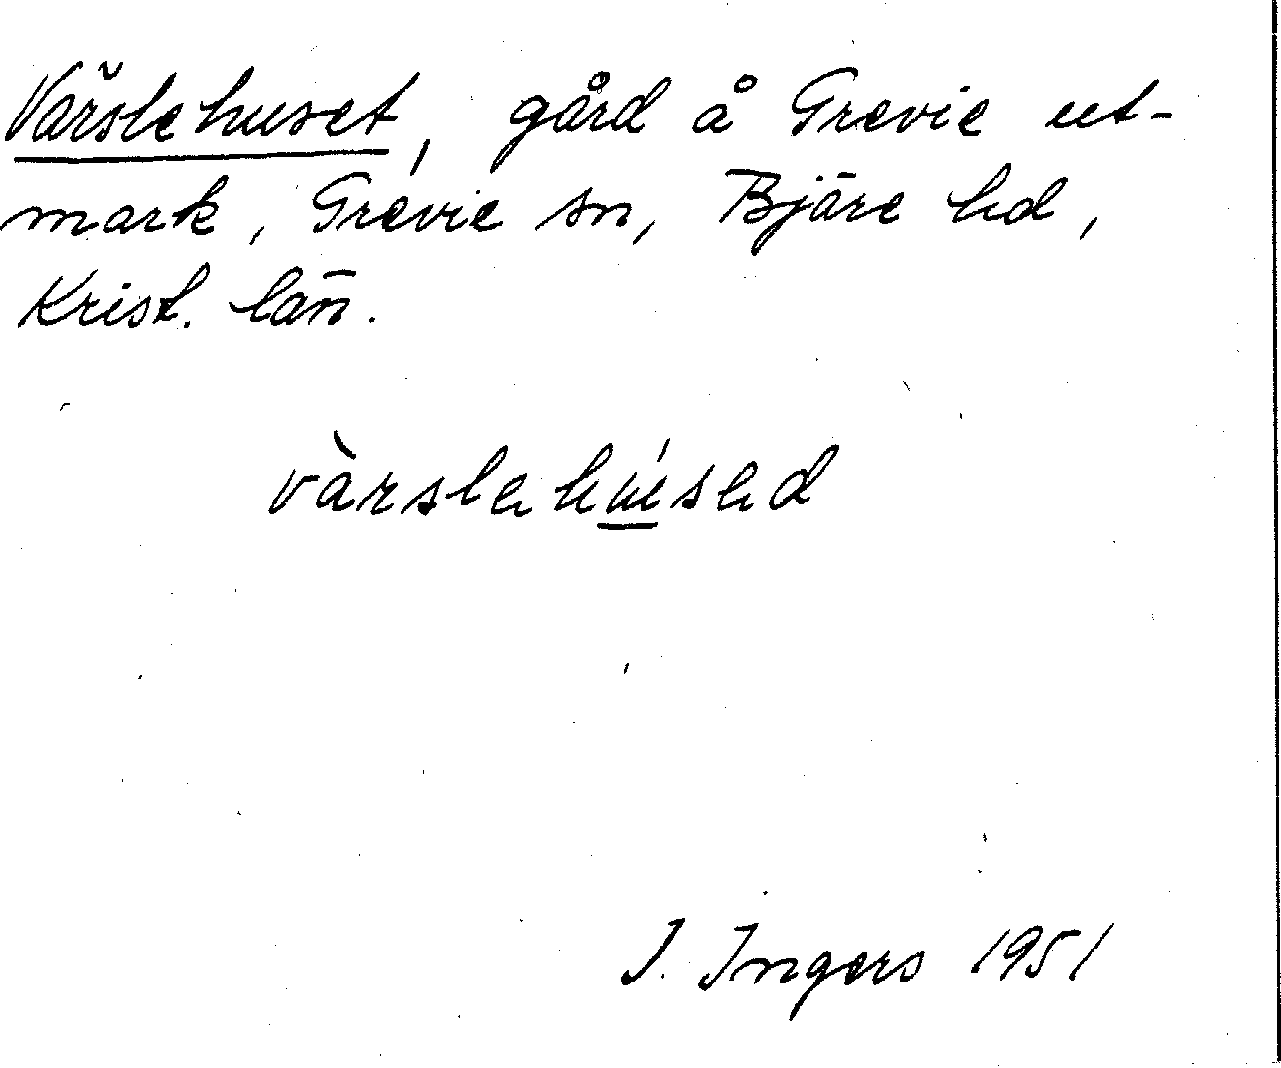 Värslehuset, gård å Grevie ut-
mark, Grevie sn, Bjäre hd,
Krist. län.
vàrslehúsed
I. Ingers 1951